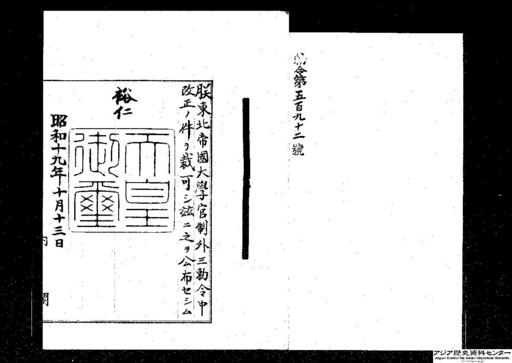 勅令第五百九十二號
朕東北帝國大學官制外三勅令中
改正ノ件ヲ裁可シ茲ニ之ヲ公布セシム
裕仁
天皇御璽
昭和十九年十月十三日
内閣
アジア歴史資料センター
Japan Center for Asian Historical Records